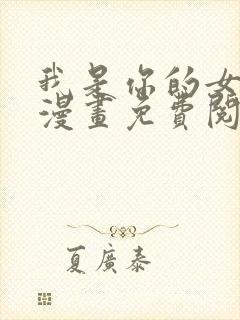 我是你的女
漫畫免費閱
夏廣泰